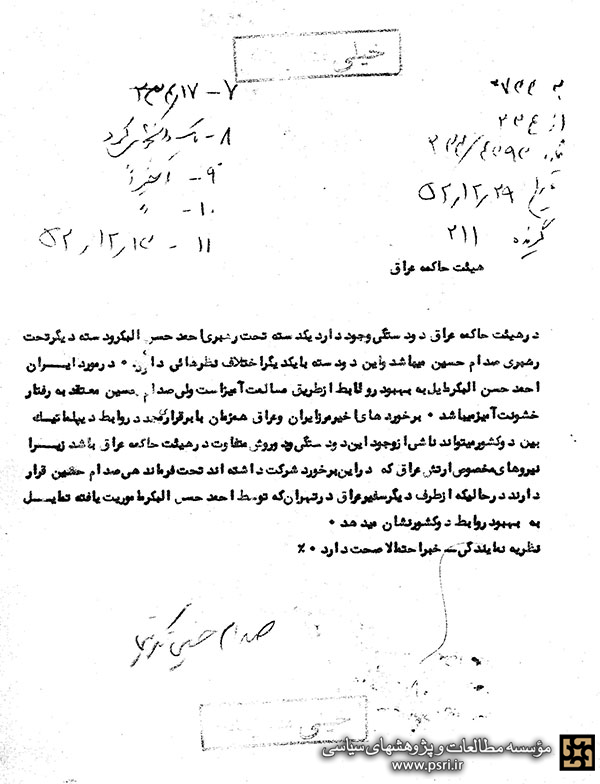 خیلی
به ۷۴۴
۷ - ۳۳۴٫۱۷
از
۸ - یک دانشجوی کرد
۹ - اخیراً
تاریخ ۵۲٫۱۲٫۲۹
۱۰ - "
گیرنده ۲۱۱
۱۱ - ۵۲٫۱۲٫۱۳
هیئت حاکمه عراق
در هیئت حاکمه عراق دو دستگی وجود دارد یکدسته تحت رهبری احمد حسن البکر و دسته دیگر تحت
رهبری صدام حسین میباشد و این دو دسته با یکدیگر اختلاف نظرهائی دارند ۰ در مورد ایران
احمد حسن البکر مایل به بهبود روابط از طریق مسالمت آمیز است ولی صدام حسین معتقد به رفتار
خشونت آمیز میباشد ۰ برخورد های اخیر مرز ایران و عراق همزمان با برقراری مجدد روابط دیپلماتیک
بین دو کشور میتواند ناشی از وجود این دو دستگی و دو روش متفاوت در هیئت حاکمه عراق باشد زیرا
نیروهای مخصوص ارتش عراق که در این برخورد شرکت داشته اند تحت فرماندهی صدام حسین قرار
دارند در حالیکه از طرف دیگر سفیر عراق در تهران که توسط احمد حسن البکر ماموریت یافته تمایل
به بهبود روابط دو کشور نشان میدهد ۰
نظریه نمایندگی - خبر احتمالا صحت دارد ۰٪
صدام حسین تکریتی
خیلی
مؤسسه مطالعات و پژوهشهای سیاسی
www.psri.ir